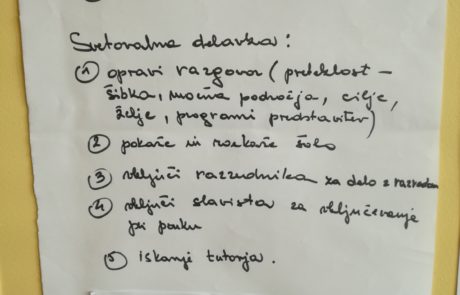 Svetovalna delavka:
① opravi razgovor (preteklost –
šibka, močna področja, cilje,
želje, programi predstavitev)
② pokaže in razkaže šolo
③ vključi razrednika za delo z razredom
④ vključi slavista za vključevanje
pri pouku
⑤ iskanje tutorja.